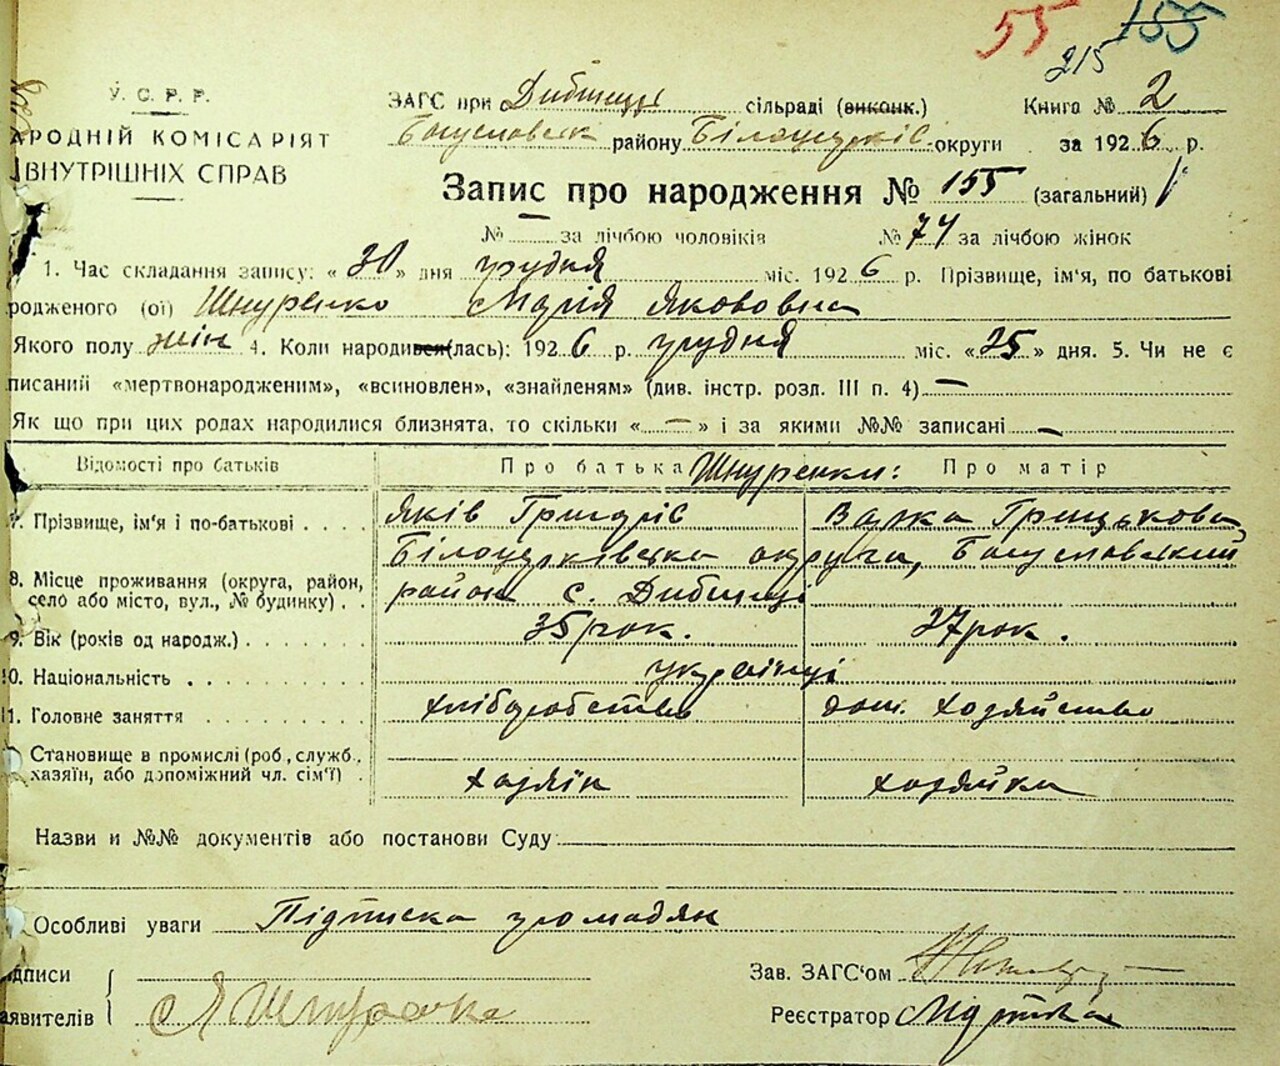 55 155
215
У. С. Р. Р.
АРОДНІЙ КОМІСАРІЯТ
ВНУТРІШНІХ СПРАВ
ЗАГС при Дибинці сільраді (виконк.) Книга № 2
Богуславськ району Білоцерківс. округи за 1926 р.
Запис про народження № 155 (загальний)
№ — за лічбою чоловіків № 74 за лічбою жінок
1. Час складання запису: «30» дня грудня міс. 1926 р. Прізвище, ім'я, по батькові
родженого (ої) Шнуренко Марія Якововна
Якого полу жін 4. Коли народився (лась): 1926 р. грудня міс. «25» дня. 5. Чи не є
писаний «мертвонародженим», «всиновлен», «знайденям» (див. інстр. розл. III п. 4) —
Як що при цих родах народилися близнята, то скільки « — » і за якими №№ записані —
Відомості про батьків Про батька Шнуренки: Про матір
7. Прізвище, ім'я і по-батькові Яків Григорів Варка Грицькова
Білоцерківська округа, Богуславський
8. Місце проживання (округа, район, район с. Дибинці
село або місто, вул., № будинку)
9. Вік (років од народж.) 35 рок. 27 рок.
10. Національність українці
11. Головне заняття хліборобство дом. хозяйство
Становище в промислі (роб, служб.
хазяїн, або допоміжний чл. сім'ї) хозяїн хозяйка
Назви и №№ документів або постанови Суду
Особливі уваги Підписка громадян
дписи Зав. ЗАГС'ом
аявителів Я Шнуренко Реєстратор